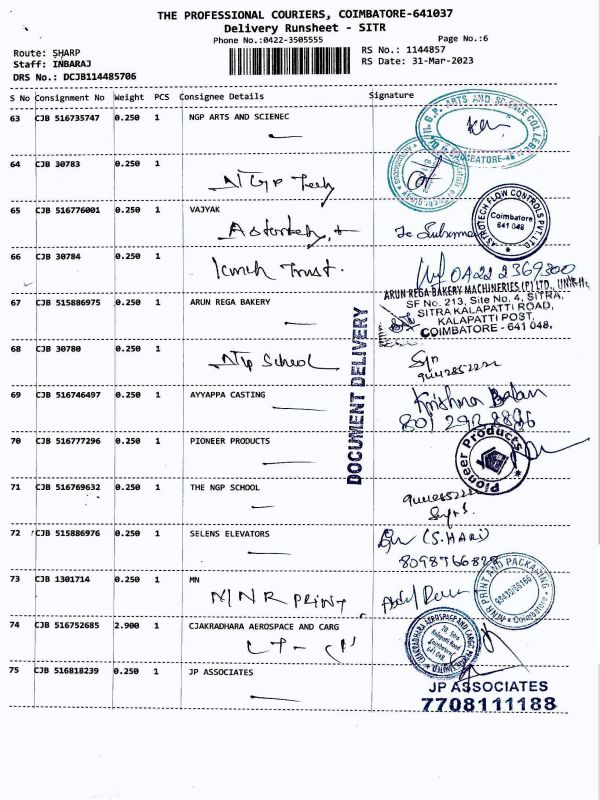 THE PROFESSIONAL COURIERS, COIMBATORE-641037
Delivery Runsheet - SITR
Phone No.:0422-3505555 Page No.:6
Route: SHARP RS No.: 1144857
Staff: INBARAJ RS Date: 31-Mar-2023
DRS No.: DCJB114485706
S No Consignment No Weight PCS Consignee Details Signature
63 CJB 516735747 0.250 1 NGP ARTS AND SCIENEC
ARTS AND SCIENCE COLLEGE
COIMBATORE-48
64 CJB 30783 0.250 1
NGP Tech
65 CJB 516776001 0.250 1 VAJYAK
ASTROTECH FLOW CONTROLS PVT. LTD.
Coimbatore
641 048
66 CJB 30784 0.250 1
Trust.
0422 2369300
67 CJB 515886975 0.250 1 ARUN REGA BAKERY
ARUN REGA BAKERY MACHINERIES (P) LTD., UNIT-II,
SF No. 213, Site No. 4, SITRA,
SITRA KALAPATTI ROAD,
KALAPATTI POST,
COIMBATORE - 641 048.
DOCUMENT DELIVERY
68 CJB 30780 0.250 1
School
69 CJB 516746497 0.250 1 AYYAPPA CASTING
Krishna Balan
70 CJB 516777296 0.250 1 PIONEER PRODUCTS
Pioneer Products
71 CJB 516769632 0.250 1 THE NGP SCHOOL
72 CJB 515886976 0.250 1 SELENS ELEVATORS
(S.HARI)
73 CJB 1301714 0.250 1 MN
MNR PRINT
MNR PRINT AND PACKAGING
74 CJB 516752685 2.900 1 CJAKRADHARA AEROSPACE AND CARG
CHAKRADHARA AEROSPACE AND CARGO
75 CJB 516818239 0.250 1 JP ASSOCIATES
JP ASSOCIATES
7708111188